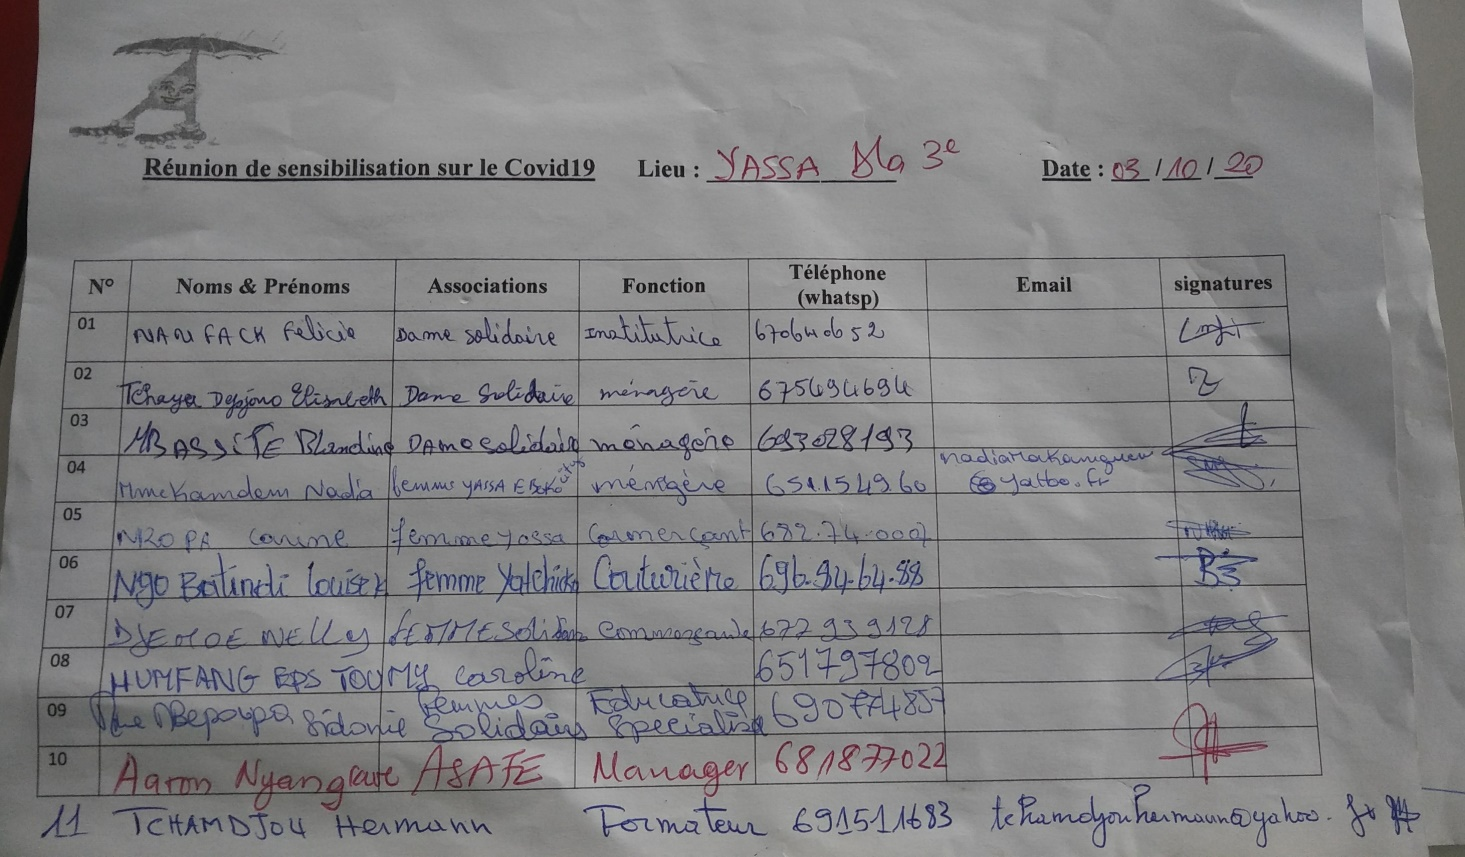 Réunion de sensibilisation sur le Covid19 Lieu : YASSA Dla 3e Date : 03/10/20
N° Noms & Prénoms Associations Fonction Téléphone (whatsp) Email signatures
01 NANFACK Felicie Dame solidaire Institutrice 670640652
02 Tchaya Elisabeth Dame Solidaire ménagère 675494694
03 MBASSITE Blandine DAme solidaire ménagère 693028193
04 Mme Kamdem Nadia femme YASSA ménégère 651.15.49.60
05 Corinne femme yassa Commerçant
06 Ngo Batindi Louise femme Couturière 696.94.64.88
07 NELLY FEMME Solidaire Commerçante 677939128
08 HUMFANG EPS TOUMY Caroline 651797802
09 Sidonie femmes Solidaires Educatrice Specialisé 690774857
10 Aaron ASAFE Manager 681877022
11 TCHAMDJOU Hermann Formateur 691511683 tchamdjouhermann@yahoo.fr